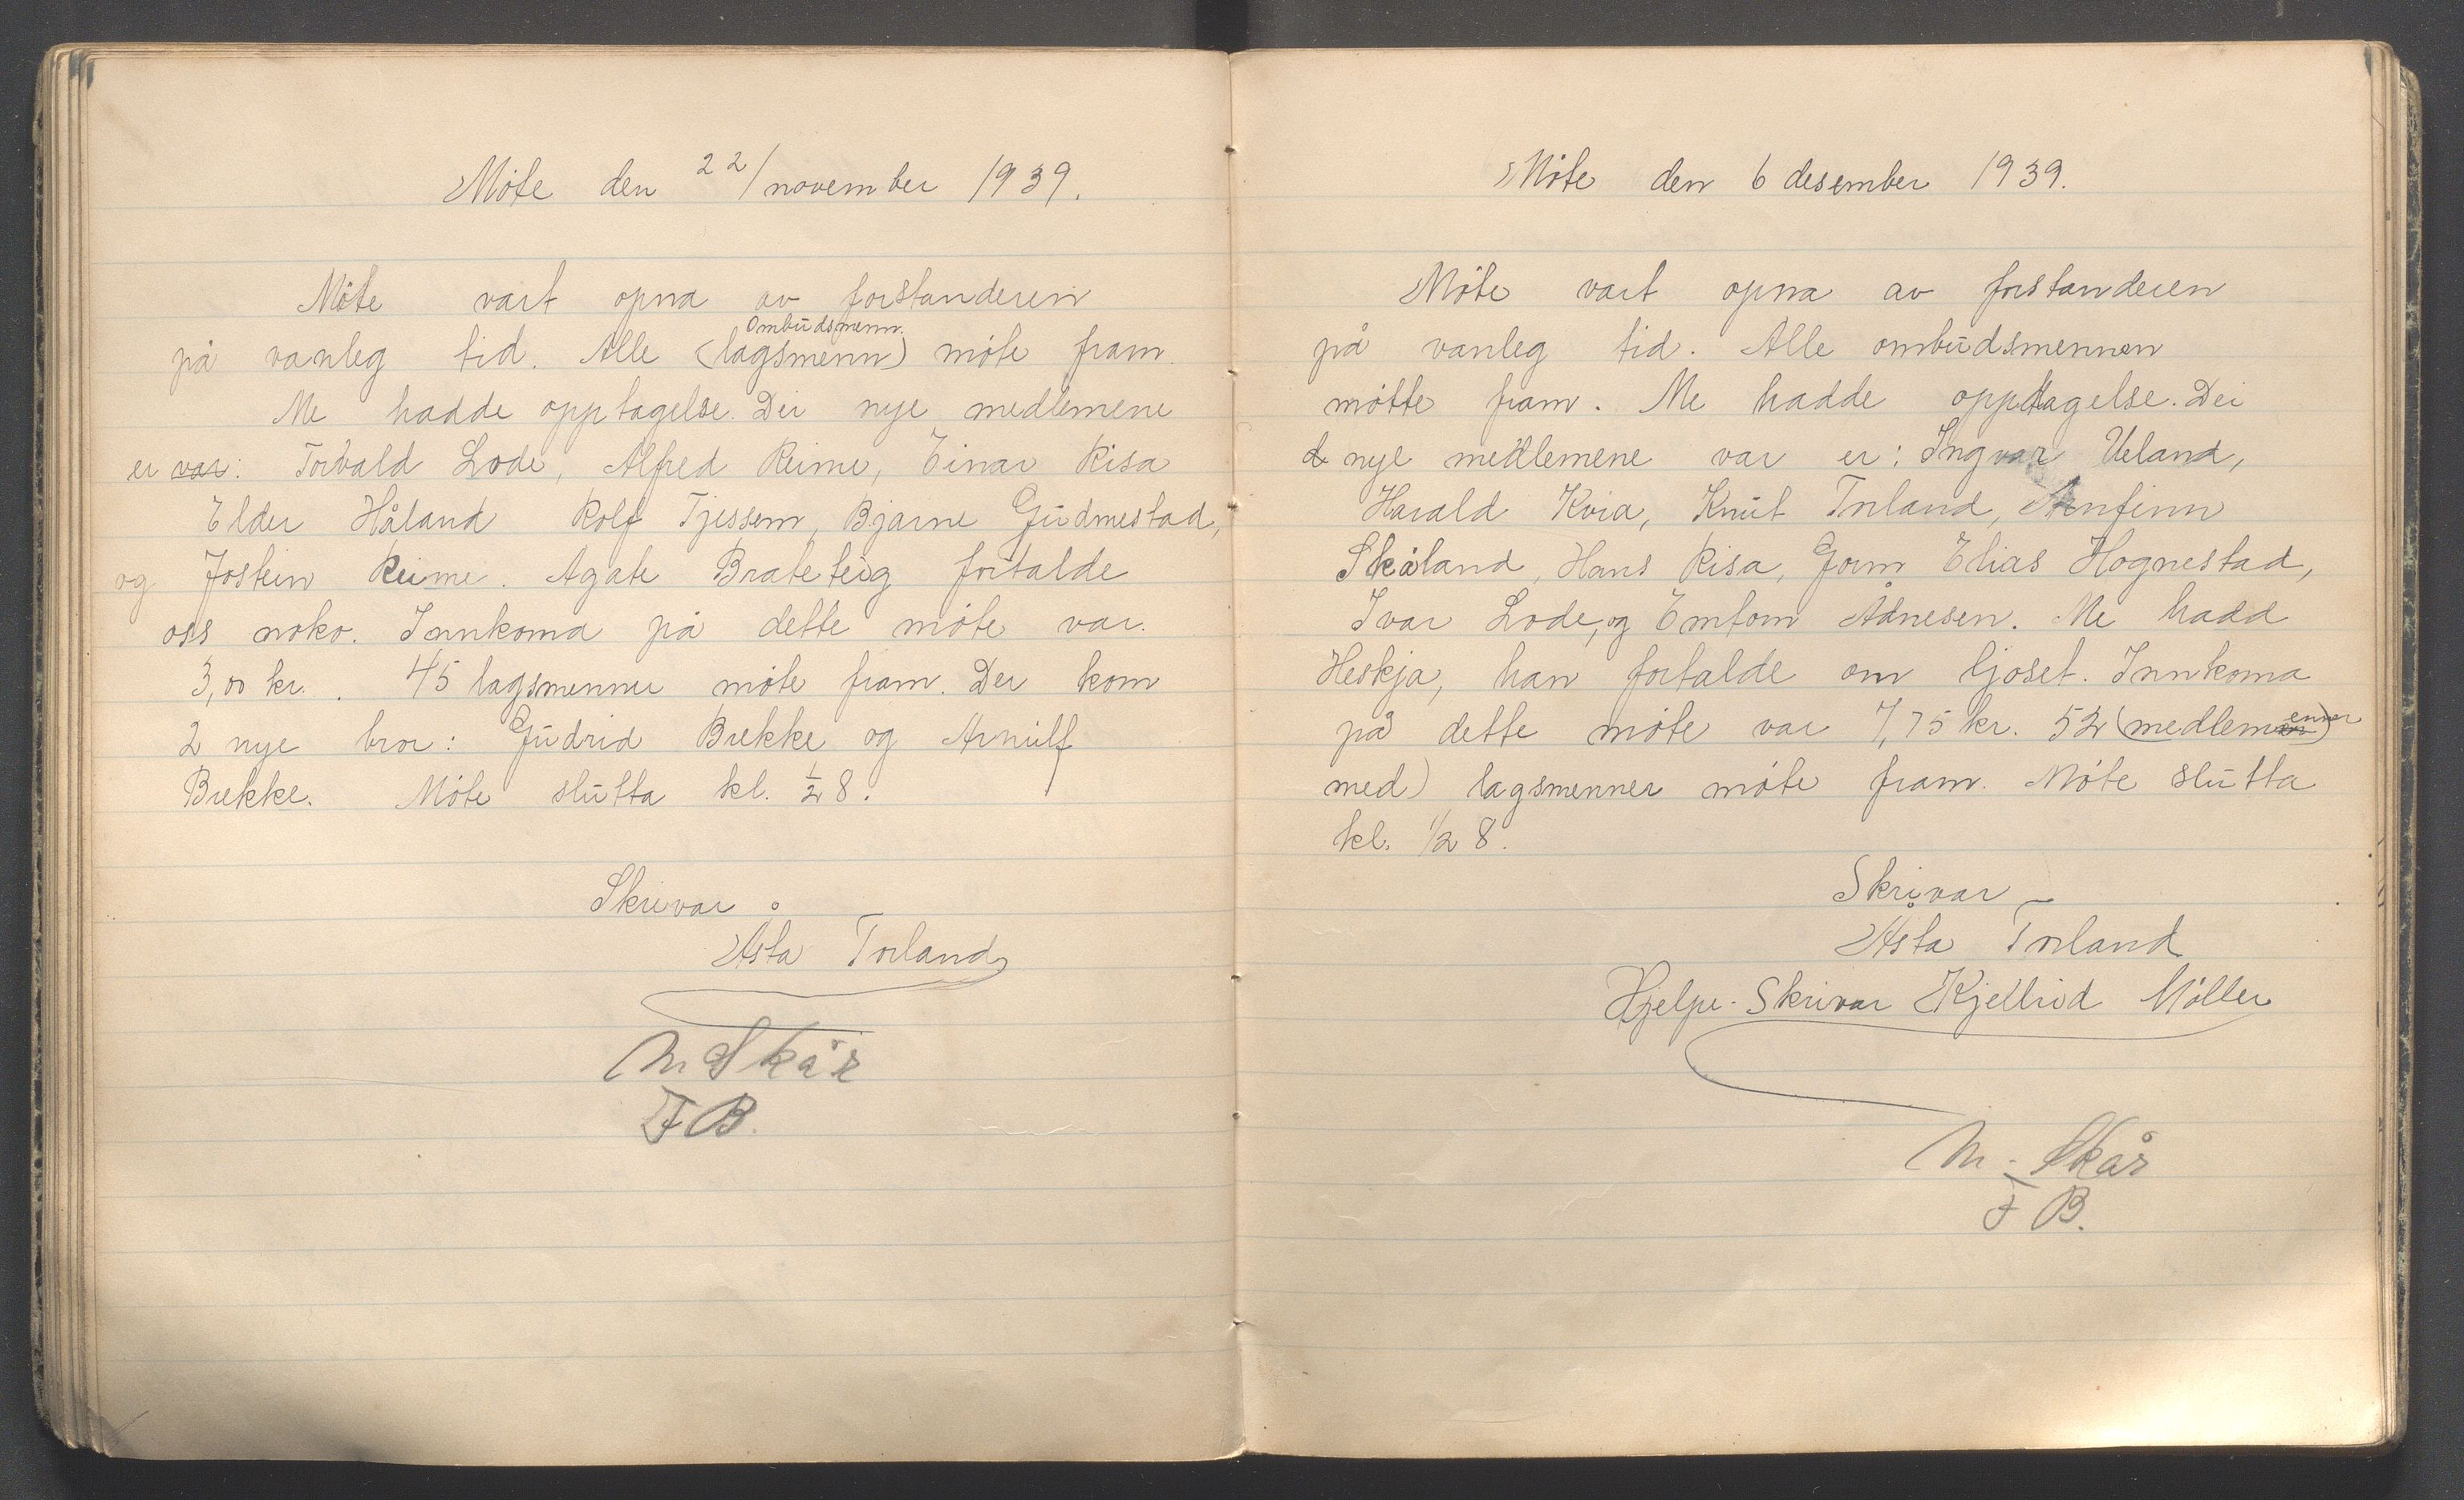 Møte den 22/november 1939.
Møte vart opna av forstanderen
ombudsmenn.
på vanleg tid. Alle (lagsmenn) møte fram.
Me hadde opptagelse. Dei nye medlemene
er var: Torvald Lode, Alfred Reime, Einar Risa
Elder Håland Rolf Tjessem, Bjarne Gudmestad,
og Jostein Reime. Agate Brateteig fortalde
oss noko. Innkoma på dette møte var.
3,00 kr. . 45 lagsmenner møte fram. Der kom
2 nye bror: Gudrid Brekke og Arnulf
Brekke. Møte slutta kl. ½ 8.
Skrivar
Åsta Torland
M Skår
F B.
Møte den 6 desember 1939.
Møte vart opna av forstanderen
på vanleg tid. Alle ombudsmennen
møtte fram. Me hadde opptagelse. Dei
d nye medlemene var er: Ingvar Ueland,
Harald Kvia, Knut Torland, Arnfinn
Skåland, Hans Risa, Gorm Elias Hognestad,
Ivar Lode, og Emtom Ådnesen. Me hadd
Heskja, han fortalde om ljoset. Innkoma
på dette møte var 7,75 kr. 52 (medlemener
med) lagsmenner møte fram. Møte slutta
kl. 1/2 8.
Skrivar
Åsta Torland
Hjelpe-Skrivar Kjellrid Møller
M. Skår
F B.